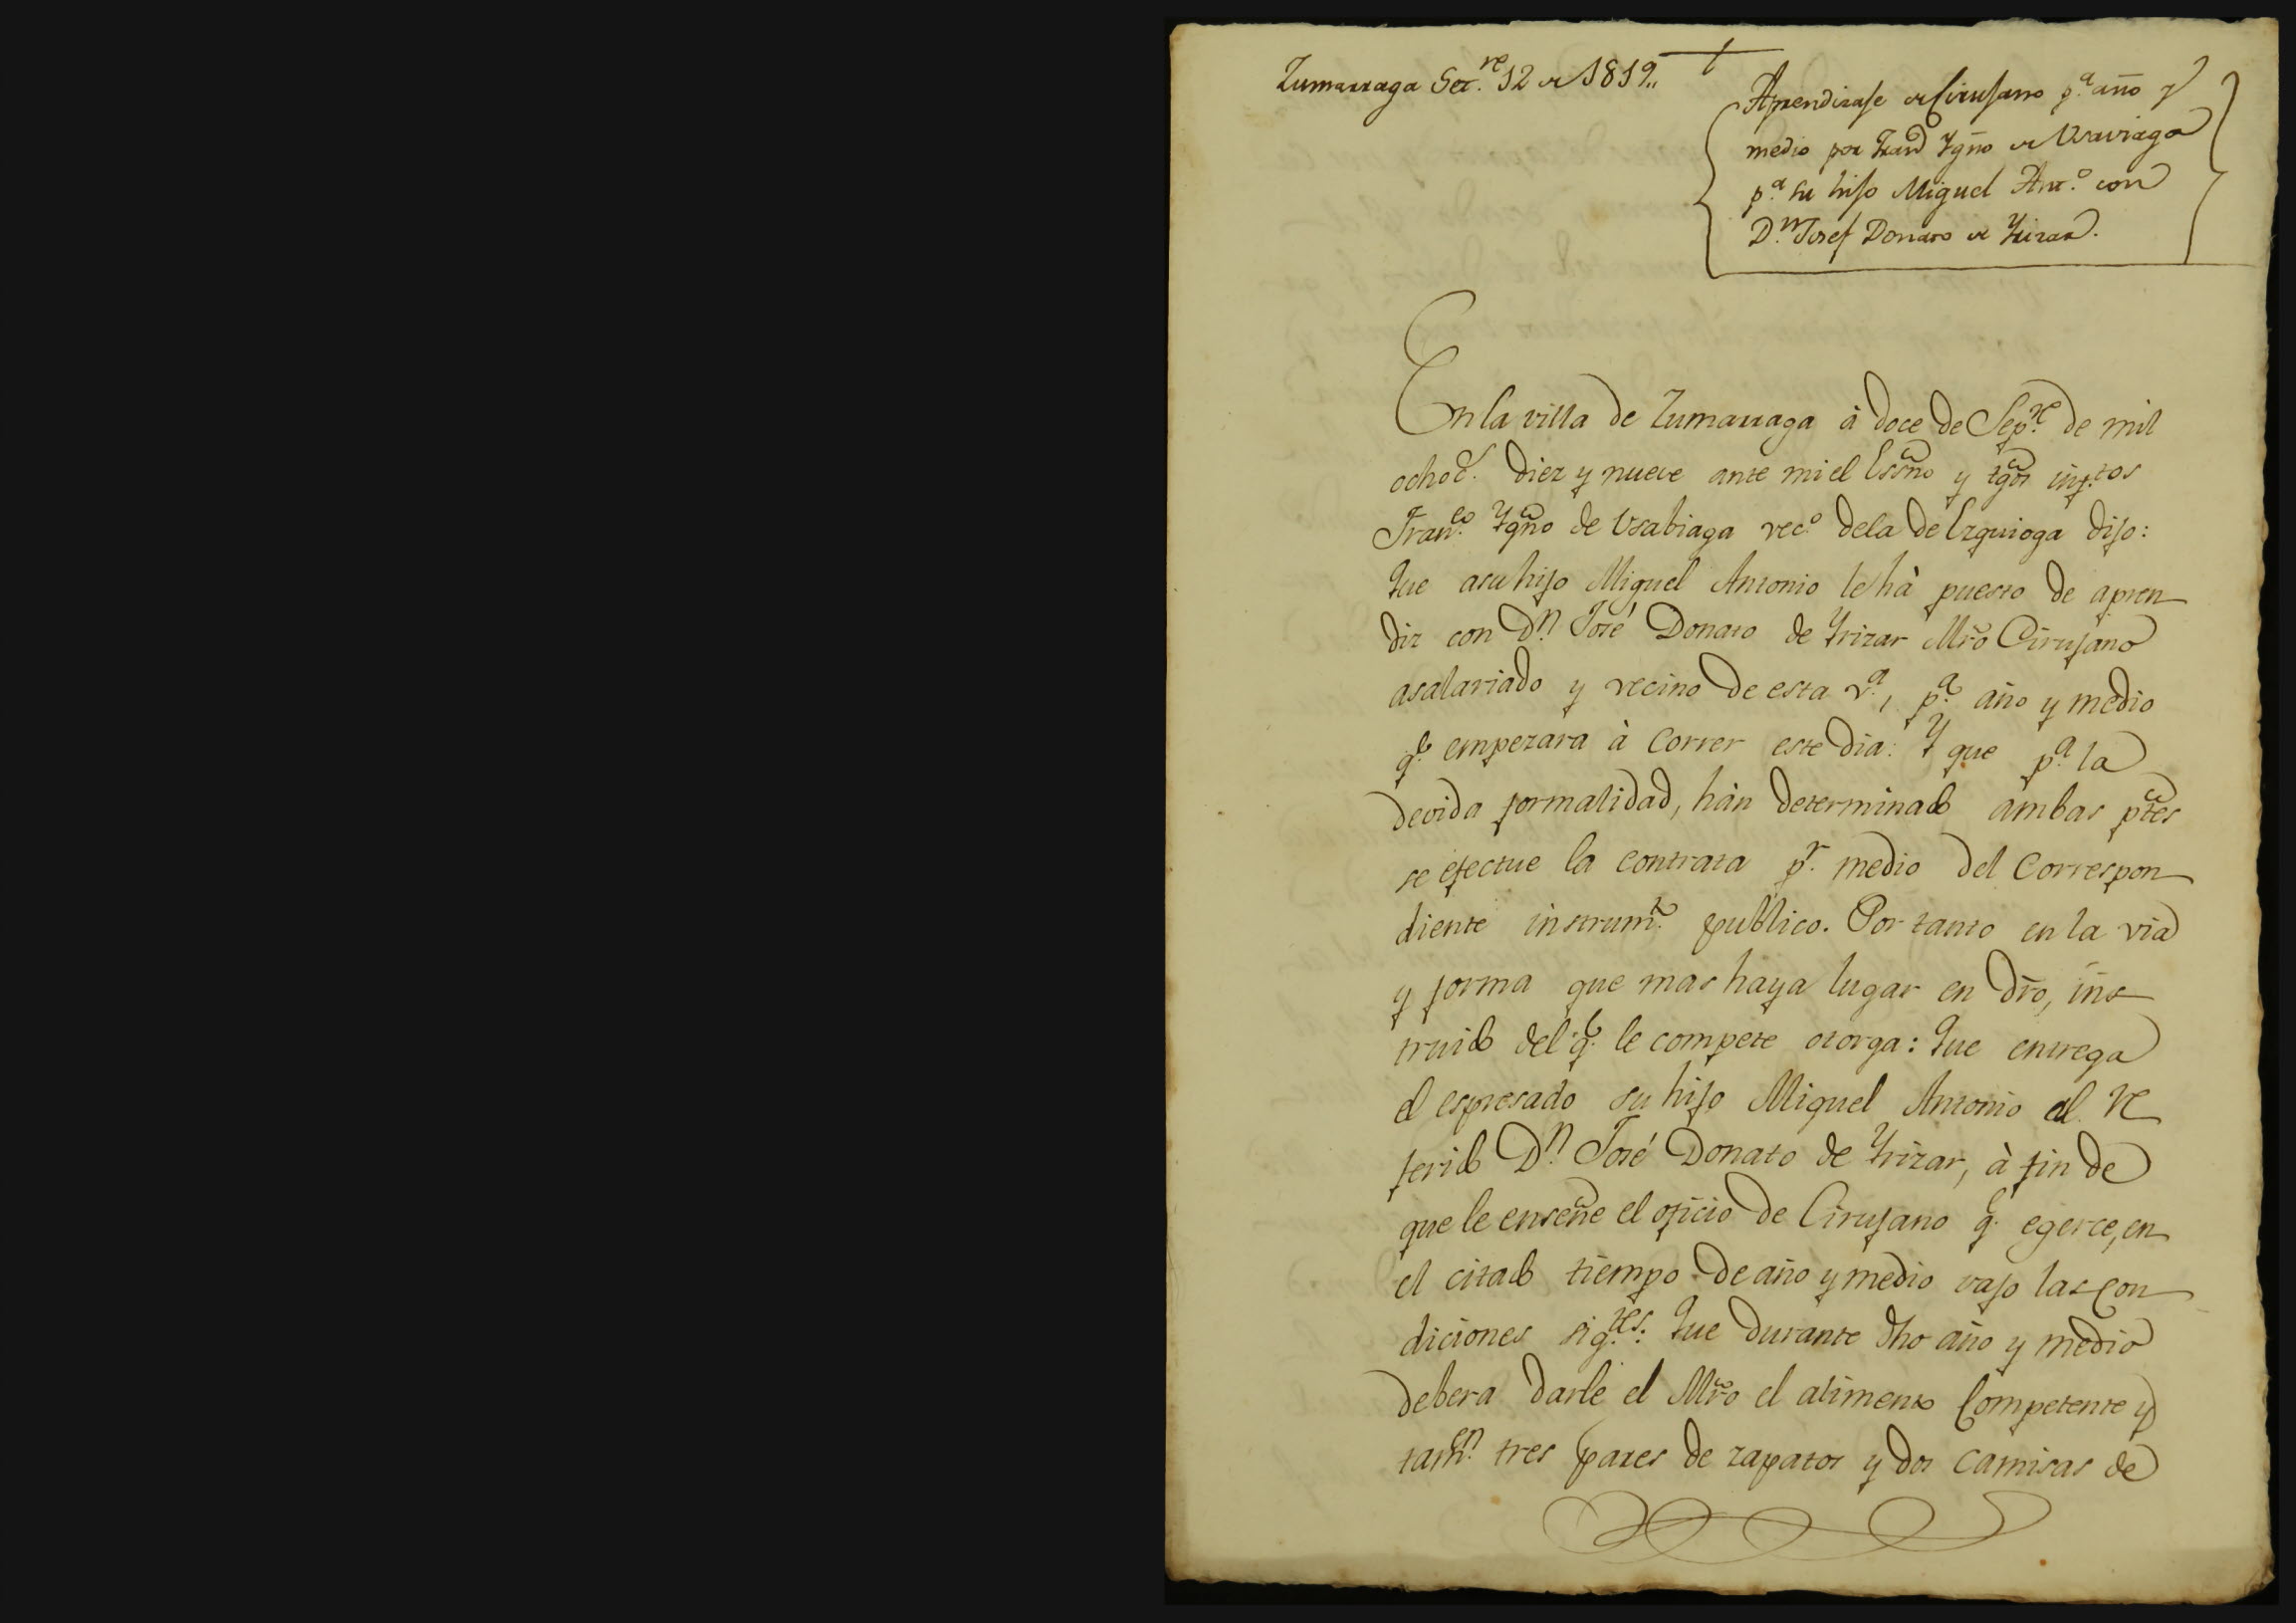 Zumarraga Set.re 12 de 1819,,
Aprendizaje de Cirujano p.a año y
medio por Fran.co Ygño de Usaviaga
p.a su hijo Miguel Ant.o con
D.n Josef Donato de Yrizar.
En la villa de Zumarraga à doce de Sep.re de mil
ochoc.s diez y nueve ante mi el Essño y tgõs inf.tos
Fran.co Ygño de Usabiaga vec.o dela de Ezquioga dijo:
Que asu hijo Miguel Antonio le hà puesto de apren
diz con D.n José Donato de Yrizar Mrõ Cirujano
asalariado y vecino de esta v.a, p.a año y medio
q.e empezara à correr este dia: Y que p.a la
devida formalidad, hàn determinado ambas ptẽs
se efectue la contrata p.r medio del correspon
diente instrum.to publico. Por tanto en la via
y forma que mas haya lugar en drõ, ins
truido del q.e le compete otorga: Que entrega
el espresado su hijo Miguel Antonio al re
ferido D.n José Donato de Yrizar, à fin de
que le enseñe el oficio de Cirujano q.e egerce, en
el citado tiempo de año y medio vajo las con
diciones sig.tes: Que durante dho año y medio
debera darle el Mrõ el alimento Competente y
tam.en tres pares de zapatos y dos camisas de